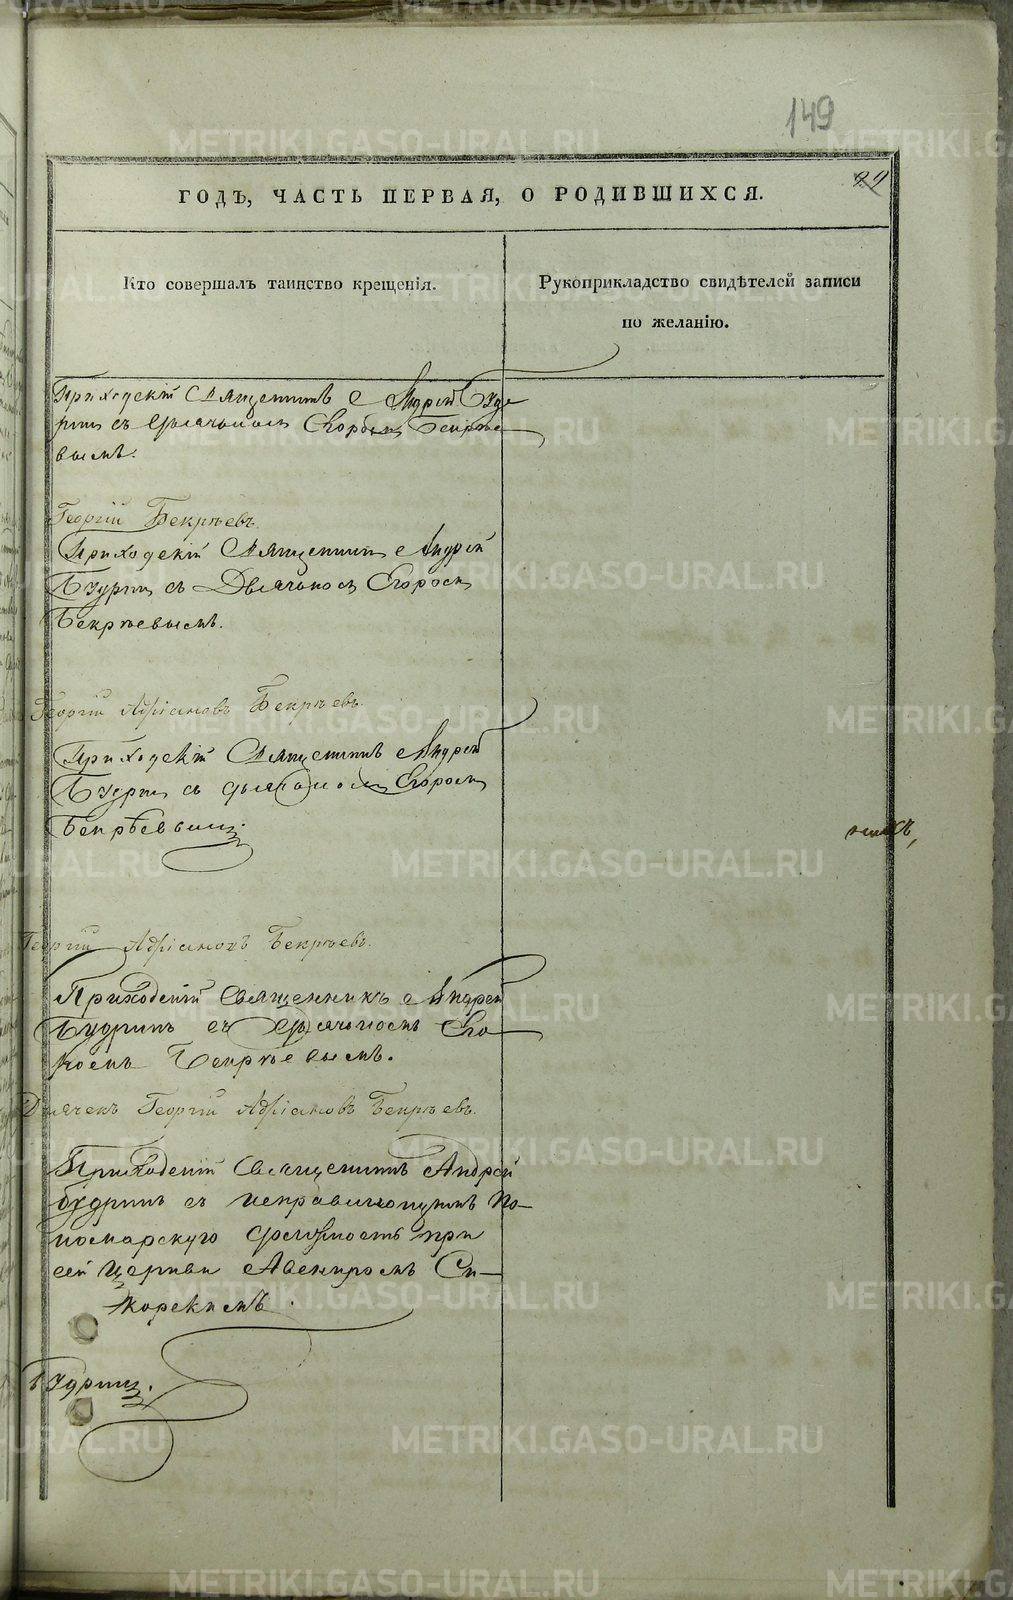 149
29
ГОДЪ, ЧАСТЬ ПЕРВАЯ, О РОДИВШИХСЯ.
Кто совершалъ таинство крещенія.
Рукоприкладство свидѣтелей записи
по желанію.
Приходскій Священникъ Андрей Буд-
ринъ съ дьячкомъ Егоромъ Бекрѣе-
вымъ.
Георгій Бекрѣевъ.
Приходскій Священникъ Андрей
Будринъ съ Дьячкомъ Егоромъ
Бекрѣевымъ.
Георгій Адріановъ Бекрѣевъ.
Приходскій Священникъ Андрей
Будринъ съ дьячкомъ Егоромъ
Бекрѣевымъ.
Георгій Адріановъ Бекрѣевъ.
Приходскій Священникъ Андрей
Будринъ съ Дьячкомъ Его-
ромъ Бекрѣевымъ.
Дьячекъ Георгій Адріановъ Бекрѣевъ.
Приходскій Священникъ Андрей
Будринъ съ исправляющимъ По-
номарскую должность при
сей церкви Авениромъ Си-
корскимъ.
Будринъ.
METRIKI.GASO-URAL.RU